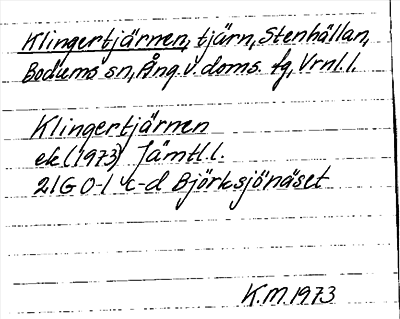 Klingertjärnen, tjärn, Stenhällan,
Bodums sn, Ång. v. doms. fg, Vrnl.l.
Klingertjärnen
ek (1973) Jämtl.l.
21G 0-1 c-d Björksjönäset
K.M. 1973